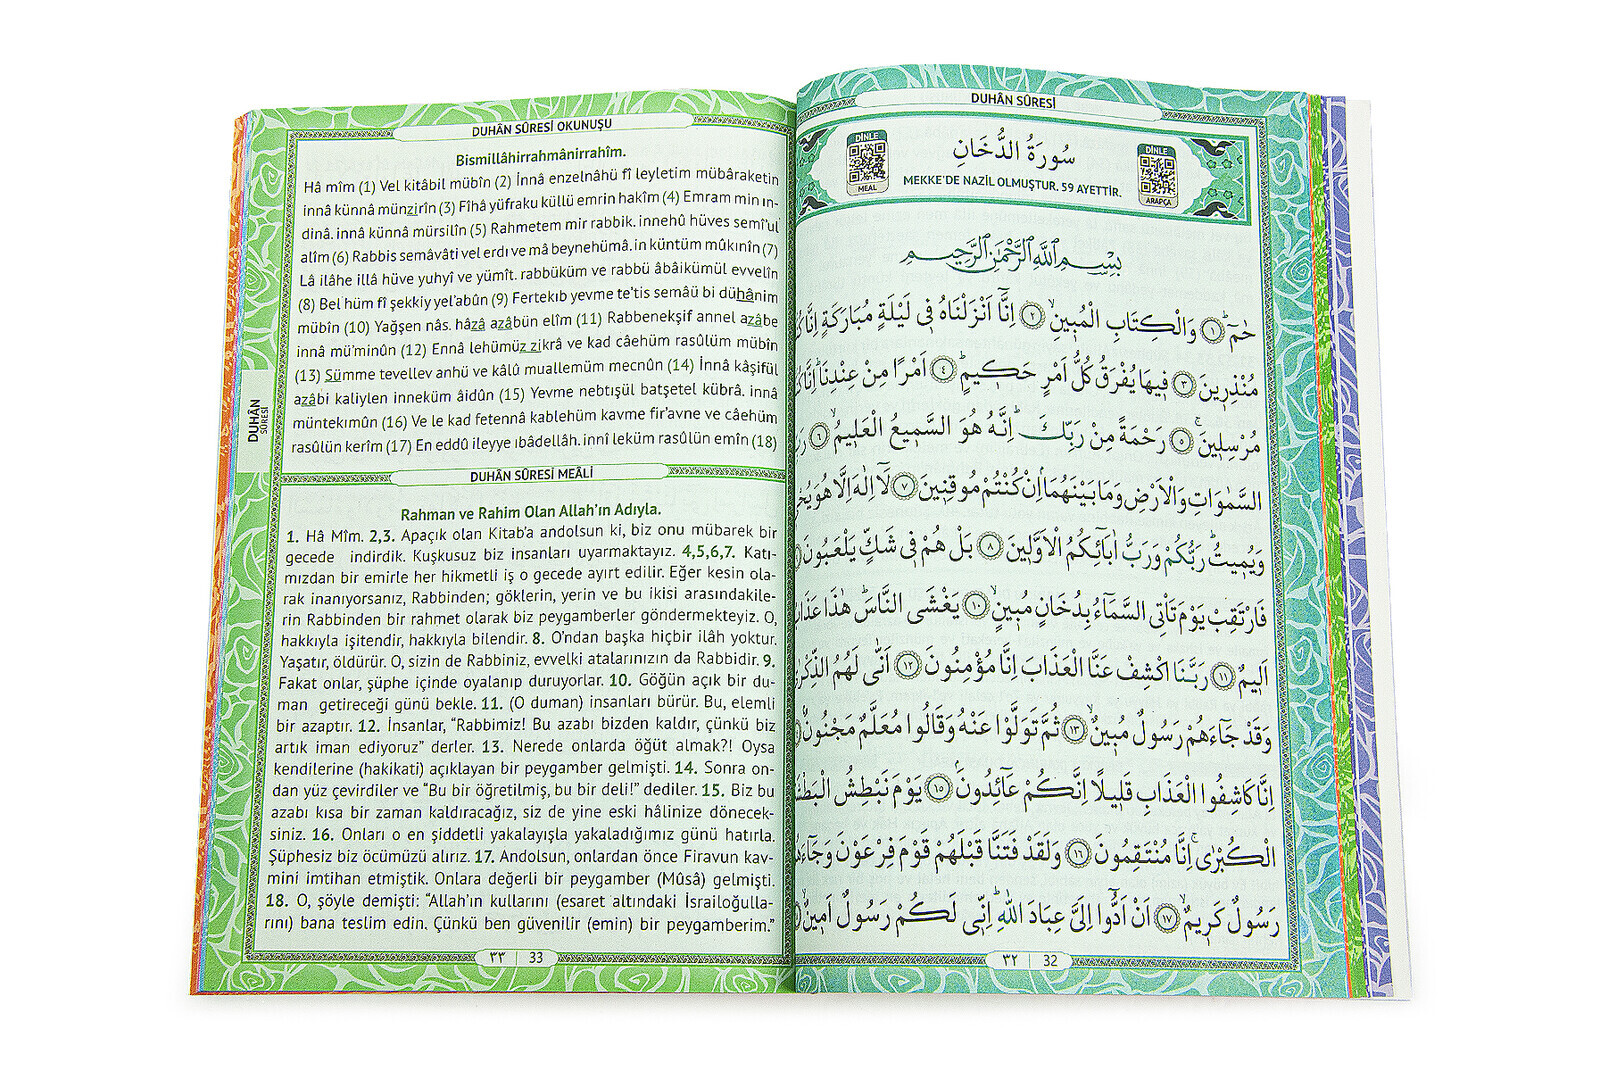 DUHÂN SÛRESİ
DİNLE
MEAL
سُورَةُ الدُّخَانِ
MEKKE'DE NAZİL OLMUŞTUR. 59 AYETTİR.
DİNLE
ARAPÇA
بِسْمِ اللّٰهِ الرَّحْمٰنِ الرَّح۪يمِ
حٰمٓۜ ﴿١﴾ وَالْكِتَابِ الْمُب۪ينِۙ ﴿٢﴾ اِنَّٓا اَنْزَلْنَاهُ ف۪ي لَيْلَةٍ مُبَارَكَةٍ اِنَّا
مُنْذِر۪ينَ ﴿٣﴾ ف۪يهَا يُفْرَقُ كُلُّ اَمْرٍ حَك۪يمٍۜ ﴿٤﴾ اَمْرًا مِنْ عِنْدِنَاۜ اِنَّا
مُرْسِل۪ينَۚ ﴿٥﴾ رَحْمَةً مِنْ رَبِّكَۜ اِنَّهُ هُوَ السَّم۪يعُ الْعَل۪يمُۙ ﴿٦﴾
السَّمٰوَاتِ وَالْاَرْضِ وَمَا بَيْنَهُمَاۢ اِنْ كُنْتُمْ مُوقِن۪ينَ ﴿٧﴾ لَٓا اِلٰهَ اِلَّا هُوَ
وَيُم۪يتُۜ رَبُّكُمْ وَرَبُّ اٰبَٓائِكُمُ الْاَوَّل۪ينَ ﴿٨﴾ بَلْ هُمْ ف۪ي شَكٍّ يَلْعَبُونَ
فَارْتَقِبْ يَوْمَ تَأْتِي السَّمَٓاءُ بِدُخَانٍ مُب۪ينٍۙ ﴿١٠﴾ يَغْشَى النَّاسَۜ هٰذَا
اَل۪يمٌ ﴿١١﴾ رَبَّنَا اكْشِفْ عَنَّا الْعَذَابَ اِنَّا مُؤْمِنُونَ ﴿١٢﴾ اَنّٰى لَهُمُ
وَقَدْ جَٓاءَهُمْ رَسُولٌ مُب۪ينٌۙ ﴿١٣﴾ ثُمَّ تَوَلَّوْا عَنْهُ وَقَالُوا مُعَلَّمٌ مَجْنُونٌۢ
اِنَّا كَاشِفُوا الْعَذَابِ قَل۪يلًا اِنَّكُمْ عَٓائِدُونَۢ ﴿١٥﴾ يَوْمَ نَبْطِشُ
الْكُبْرٰىۚ اِنَّا مُنْتَقِمُونَ ﴿١٦﴾ وَلَقَدْ فَتَنَّا قَبْلَهُمْ قَوْمَ فِرْعَوْنَ
رَسُولٌ كَر۪يمٌۙ ﴿١٧﴾ اَنْ اَدُّٓوا اِلَيَّ عِبَادَ اللّٰهِۜ اِنّ۪ي لَكُمْ رَسُولٌ اَم۪ينٌۙ
٣٢ | 32
DUHÂN SÛRESİ OKUNUŞU
Bismillâhirrahmânirrahîm.
Hâ mîm (1) Vel kitâbil mübîn (2) İnnâ enzelnâhü fî leyletim mübâraketin
innâ künnâ münzirîn (3) Fîhâ yüfraku küllü emrin hakîm (4) Emram min ın-
dinâ. innâ künnâ mürsilîn (5) Rahmetem mir rabbik. innehû hüves semî'ul
alîm (6) Rabbis semâvâti vel erdı ve mâ beynehümâ. in küntüm mûkınîn (7)
Lâ ilâhe illâ hüve yuhyî ve yümît. rabbüküm ve rabbü âbâikümül evvelîn
(8) Bel hüm fî şekkiy yel'abûn (9) Fertekıb yevme te'tis semâü bi dühânim
mübîn (10) Yağşen nâs. hâzâ azâbün elîm (11) Rabbenekşif annel azâbe
innâ mü'minûn (12) Ennâ lehümüz zikrâ ve kad câehüm rasûlüm mübîn
(13) Sümme tevellev anhü ve kâlû muallemüm mecnûn (14) İnnâ kâşifül
azâbi kaliylen inneküm âidûn (15) Yevme nebtışül batşetel kübrâ. innâ
müntekımûn (16) Ve le kad fetennâ kablehüm kavme fir'avne ve câehüm
rasûlün kerîm (17) En eddû ileyye ıbâdellâh. innî leküm rasûlün emîn (18)
DUHÂN
SÛRESİ
DUHÂN SÛRESİ MEÂLİ
Rahman ve Rahim Olan Allah'ın Adıyla.
1. Hâ Mîm. 2,3. Apaçık olan Kitab'a andolsun ki, biz onu mübarek bir
gecede indirdik. Kuşkusuz biz insanları uyarmaktayız. 4,5,6,7. Katı-
mızdan bir emirle her hikmetli iş o gecede ayırt edilir. Eğer kesin ola-
rak inanıyorsanız, Rabbinden; göklerin, yerin ve bu ikisi arasındakile-
rin Rabbinden bir rahmet olarak biz peygamberler göndermekteyiz. O,
hakkıyla işitendir, hakkıyla bilendir. 8. O'ndan başka hiçbir ilâh yoktur.
Yaşatır, öldürür. O, sizin de Rabbiniz, evvelki atalarınızın da Rabbidir. 9.
Fakat onlar, şüphe içinde oyalanıp duruyorlar. 10. Göğün açık bir du-
man getireceği günü bekle. 11. (O duman) insanları bürür. Bu, elemli
bir azaptır. 12. İnsanlar, "Rabbimiz! Bu azabı bizden kaldır, çünkü biz
artık iman ediyoruz" derler. 13. Nerede onlarda öğüt almak?! Oysa
kendilerine (hakikati) açıklayan bir peygamber gelmişti. 14. Sonra on-
dan yüz çevirdiler ve "Bu bir öğretilmiş, bu bir deli!" dediler. 15. Biz bu
azabı kısa bir zaman kaldıracağız, siz de yine eski hâlinize dönecek-
siniz. 16. Onları o en şiddetli yakalayışla yakaladığımız günü hatırla.
Şüphesiz biz öcümüzü alırız. 17. Andolsun, onlardan önce Firavun kav-
mini imtihan etmiştik. Onlara değerli bir peygamber (Mûsâ) gelmişti.
18. O, şöyle demişti: "Allah'ın kullarını (esaret altındaki İsrailoğulla-
rını) bana teslim edin. Çünkü ben güvenilir (emin) bir peygamberim."
٣٣ | 33